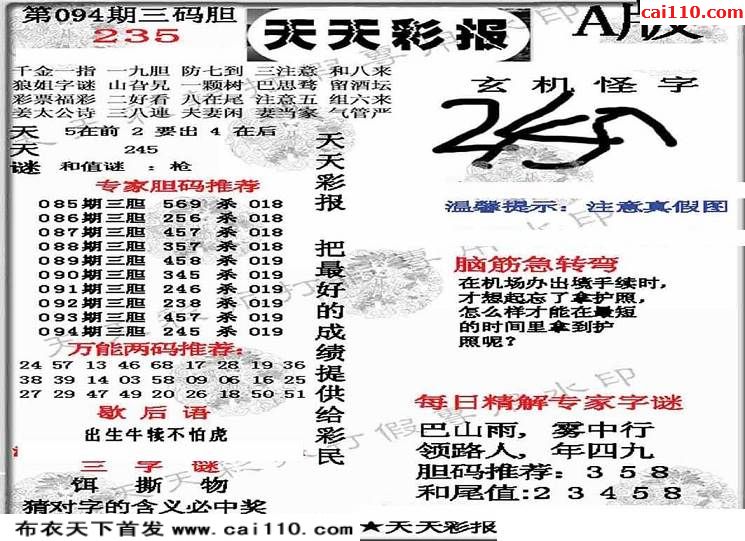 第094期三码胆
235
天天彩报
A版
cai110.com
千金一指 一九胆 防七到 三注意 和八来
狼姐字谜 山旮兄 一颗树 巴思骛 留酒坛
彩票福彩 二好看 八在尾 注意五 组六来
姜太公诗 三八連 夫妻闲 妻当家 气管严
天 5在前 2 要出 4 在后
天 245
谜 和值谜 :枪
专家胆码推荐
085期三胆 569 杀 018
086期三胆 256 杀 018
087期三胆 457 杀 018
088期三胆 357 杀 018
089期三胆 458 杀 019
090期三胆 345 杀 019
091期三胆 246 杀 019
092期三胆 238 杀 019
093期三胆 457 杀 019
094期三胆 245 杀 019
万能两码推荐:
24 57 13 46 68 17 28 19 36
38 39 14 03 58 09 06 16 25
27 29 47 49 20 26 18 50 51
歇后语
出生牛犊不怕虎
三字谜
饵 撕 物
猜对字的含义必中奖
天天彩报 把最好的成绩提供给彩民
玄机怪字
温馨提示: 注意真假图
脑筋急转弯
在机场办出境手续时,
才想起忘了拿护照,
怎么样才能在最短
的时间里拿到护
照呢?
每日精解专家字谜
巴山雨, 雾中行
领路人, 年四九
胆码推荐: 3 5 8
和尾值:2 3 4 5 8
布衣天下首发 www.cai110.com ★天天彩报